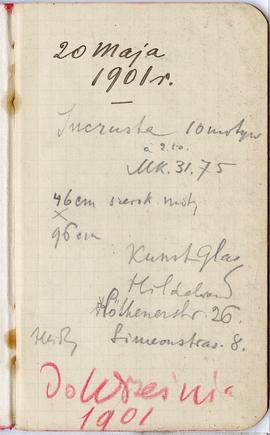 20 Maja
1901 r.
Incrusta 10 motyw
à 2.50.
MK. 31.75
46 cm szerok
×
96 cm
Kunst Glas
Köthenerstr. 26.
Simeonstras. 8.
Do Września
1901